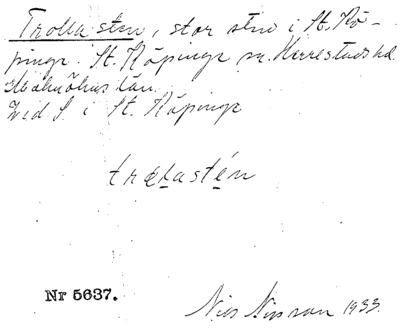 Trolla sten, stor sten i St. Kö-
pinge. St. Köpinge sn. Herrestads hd.
Malmöhus län.
Ved S. i St. Köpinge
Nr 5637.
Nils Nilsson 1933.